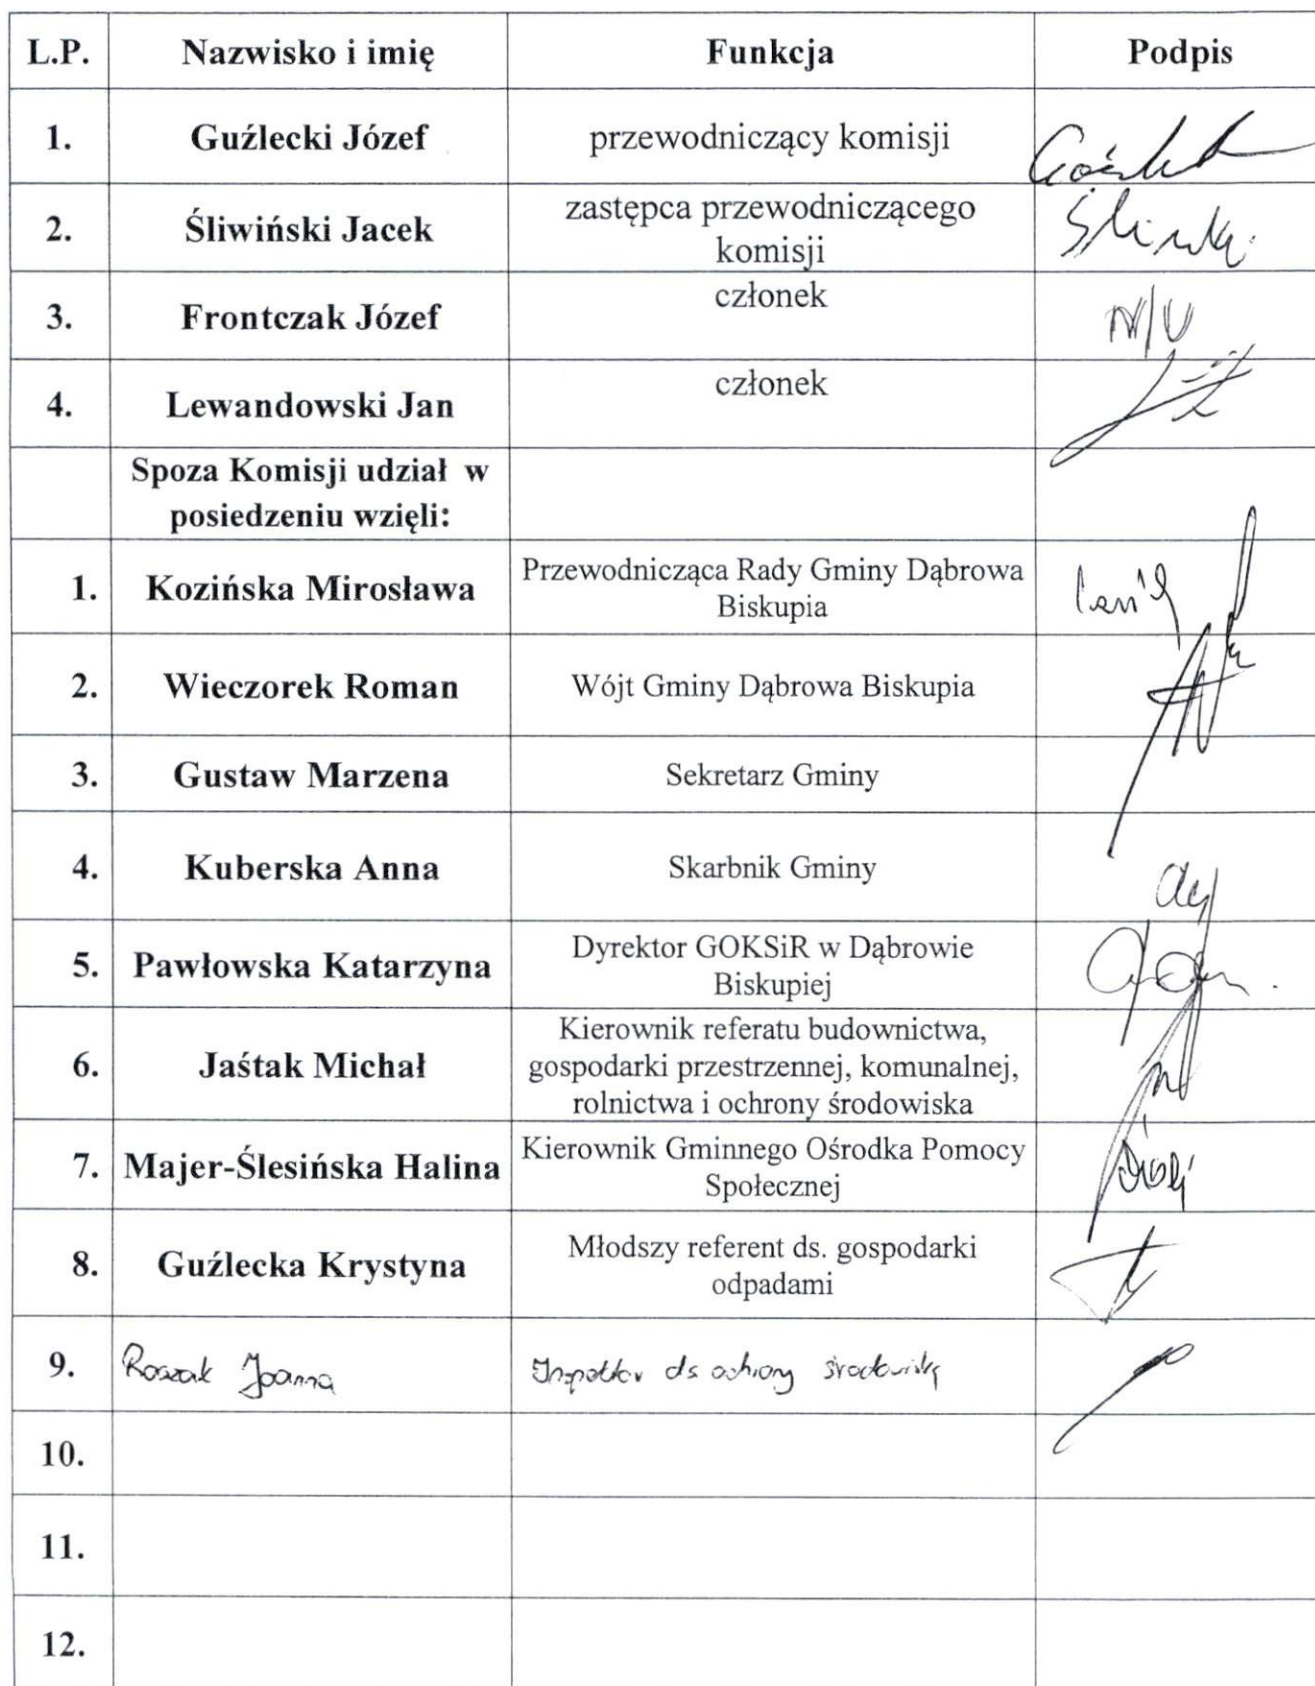 L.P. Nazwisko i imię Funkcja Podpis
1. Guźlecki Józef przewodniczący komisji
2. Śliwiński Jacek zastępca przewodniczącego
komisji
3. Frontczak Józef członek N/U
4. Lewandowski Jan członek
Spoza Komisji udział w
posiedzeniu wzięli:
1. Kozińska Mirosława Przewodnicząca Rady Gminy Dąbrowa
Biskupia
2. Wieczorek Roman Wójt Gminy Dąbrowa Biskupia
3. Gustaw Marzena Sekretarz Gminy
4. Kuberska Anna Skarbnik Gminy
5. Pawłowska Katarzyna Dyrektor GOKSiR w Dąbrowie
Biskupiej
6. Jaśtak Michał Kierownik referatu budownictwa,
gospodarki przestrzennej, komunalnej,
rolnictwa i ochrony środowiska
7. Majer-Ślesińska Halina Kierownik Gminnego Ośrodka Pomocy
Społecznej
8. Guźlecka Krystyna Młodszy referent ds. gospodarki
odpadami
9. Roszak Joanna Inspektor ds ochrony środowiska
10.
11.
12.